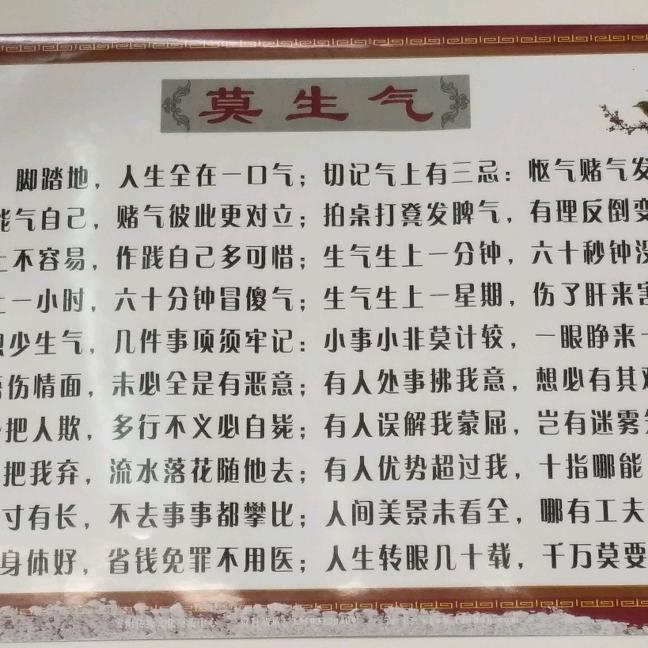 莫生气
脚踏地，人生全在一口气；切记气上有三忌：怄气赌气发
气自己，赌气彼此更对立；拍桌打凳发脾气，有理反倒变
不容易，作践自己多可惜；生气生上一分钟，六十秒钟没
一小时，六十分钟冒傻气；生气生上一星期，伤了肝来害
少生气，几件事项须牢记：小事小非莫计较，一眼睁来一
伤情面，未必全是有恶意；有人处事拂我意，想必有其难
把人欺，多行不义必自毙；有人误解我蒙屈，岂有迷雾
把我弃，流水落花随他去；有人优势超过我，十指哪能
寸有长，不去事事都攀比；人间美景未看全，哪有工夫
身体好，省钱免罪不用医；人生转眼几十载，千万莫要